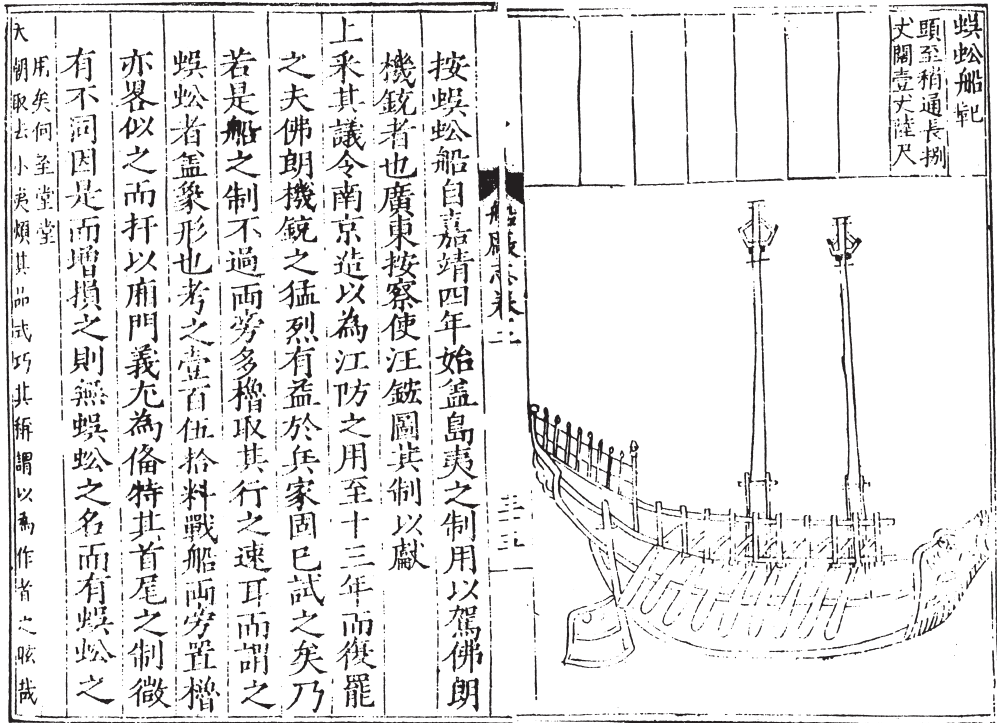 蜈蚣船範
頭至稍通長捌
丈闊壹丈陸尺
船廠志卷二
三十五
按蜈蚣船自嘉靖四年始盖島夷之制用以駕佛朗
機銃者也廣東按察使汪鋐圖其制以獻
上采其議令南京造以為江防之用至十三年而復罷
之夫佛朗機銃之猛烈有益於兵家固已試之矣乃
若是船之制不過両旁多櫓取其行之速耳而謂之
蜈蚣者盖象形也考之壹百伍拾料戰船両旁置櫓
亦畧似之而扞以廂門義尤為俻特其首尾之制微
有不同因是而增損之則無蜈蚣之名而有蜈蚣之
用矣何至堂堂
大朝取法小夷類其品式巧其稱謂以為作者之眩哉